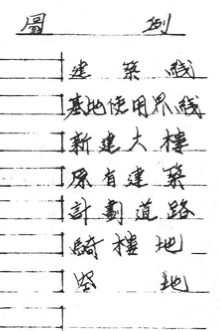 圖例
建築線
基地使用界線
新建大樓
原有建築
計劃道路
騎樓地
空地